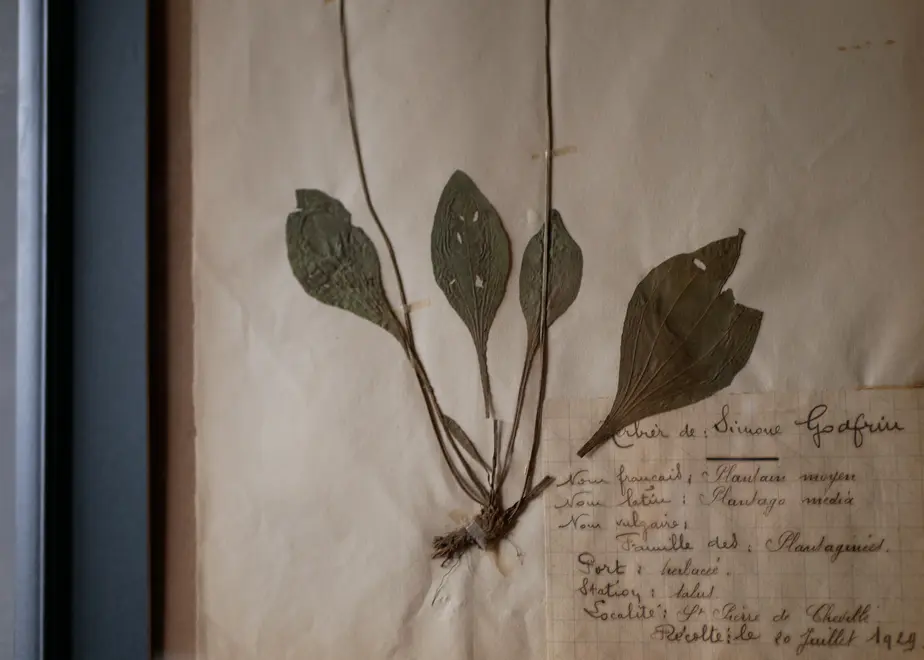 Herbier de : Simone Godfrin
Nom français : Plantain moyen
Nom latin : Plantago média
Nom vulgaire :
Famille des : Plantaginées.
Port : herbacé.
Station : talus
Localité : St Pierre de
Récolté : le 20 Juillet 1929